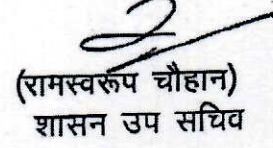 (रामस्वरूप चौहान)
शासन उप सचिव